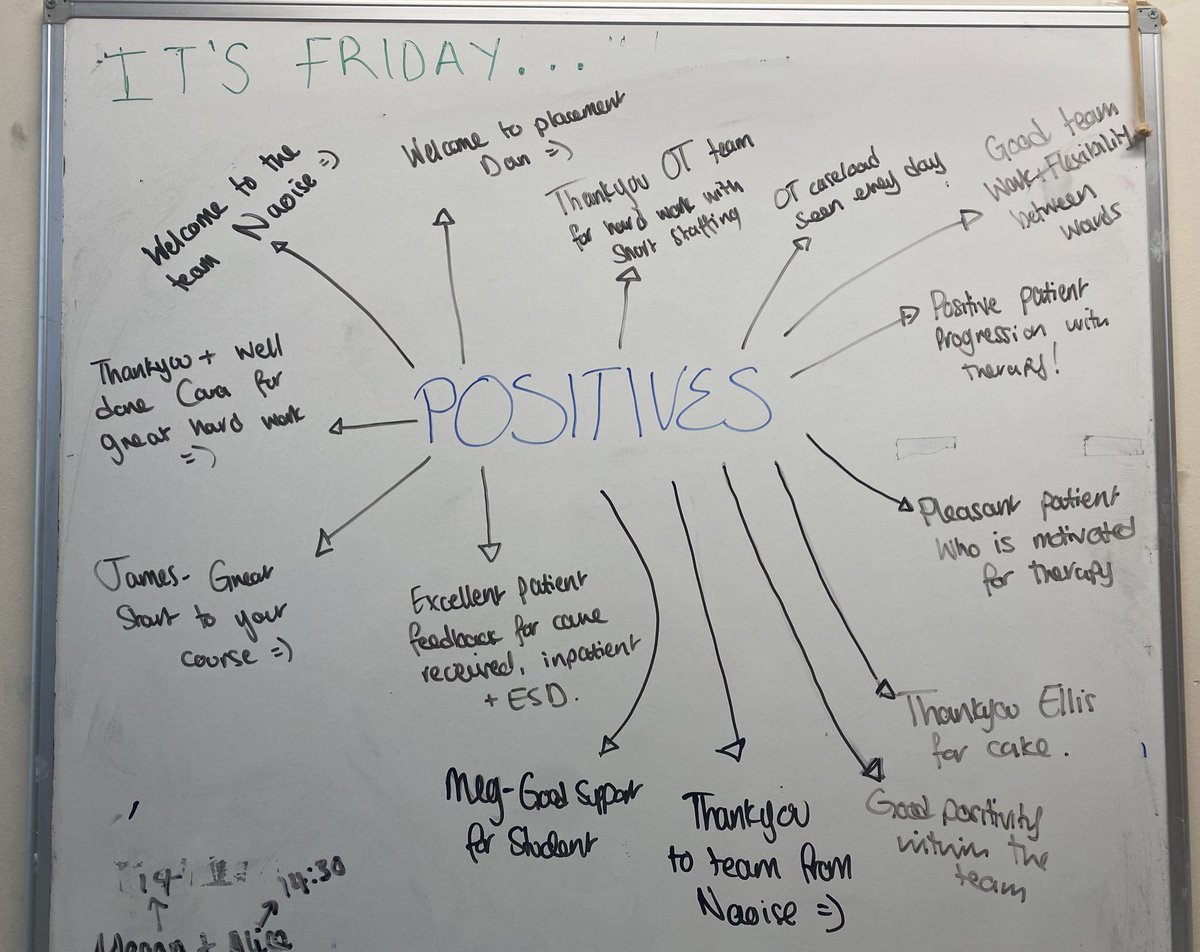 IT'S FRIDAY...
Welcome to the
team Naoise =)
Welcome to placement
Dan =)
Thankyou OT team
for hard work with
short staffing
OT caseload
seen every day
Good team
work + flexibility
between
wards
Positive patient
progression with
therapy!
POSITIVES
Thankyou + well
done Cara for
great hard work
=)
Pleasant patient
who is motivated
for therapy
James - Great
start to your
course =)
Excellent patient
feedback for care
received, inpatient
+ ESD.
Thankyou Ellis
for cake.
Meg - Good support
for student
Thankyou
to team from
Naoise =)
Good positivity
within the
team
14:30
+ Alice